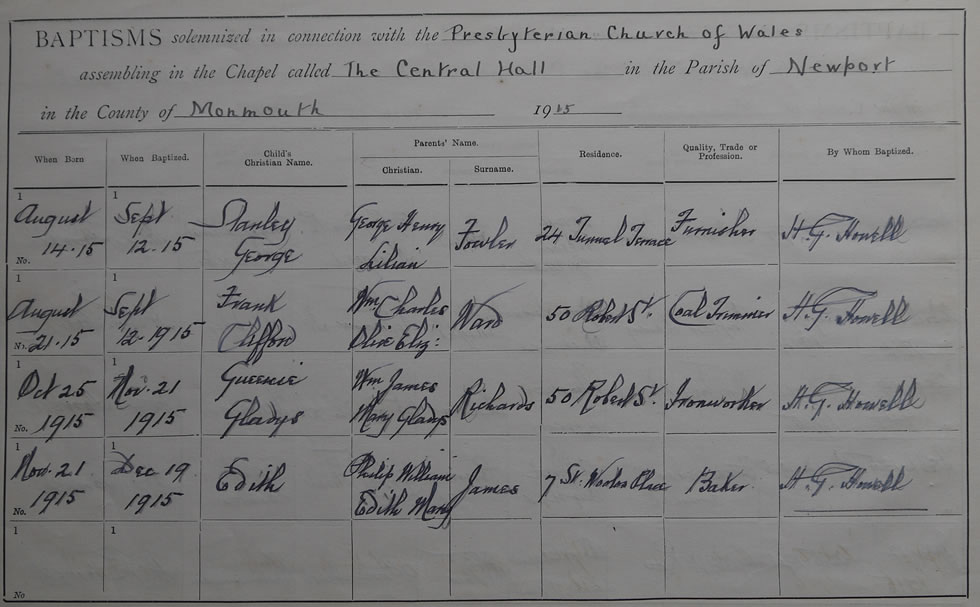 BAPTISMS solemnized in connection with the Presbyterian Church of Wales
assembling in the Chapel called The Central Hall in the Parish of Newport
in the County of Monmouth 1915
When Born When Baptized. Child's Christian Name. Parents' Name. Christian. Surname. Residence. Quality, Trade or Profession. By Whom Baptized.
1 1
August Sept Stanley George Henry Fowler 24 Tunnel Terrace Furnisher H. G. Howell
No. 14.15 12.15 George Lilian
1 1
August Sept Frank Wm Charles Ward 50 Robert St. Coal Trimmer H. G. Howell
No. 21.15 12.1915 Clifford Olive Eliz:
1 1
Oct 25 Nov. 21 Queenie Wm James Richards 50 Robert St. Ironworker H. G. Howell
No. 1915 1915 Gladys Mary Gladys
1 1
Nov. 21 Dec 19 Edith Philip William James 7 St. Woolos Place Baker H. G. Howell
No. 1915 1915 Edith Mary
1 1
No